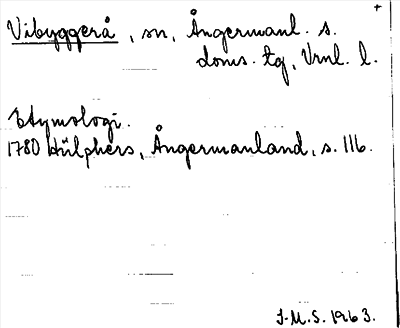 Vibyggerå, sn, Ångermanl. s.
doms. tg, Vrnl. l.
Etymologi.
1780 Hülphers, Ångermanland, s. 116.
J.M.S. 1963.